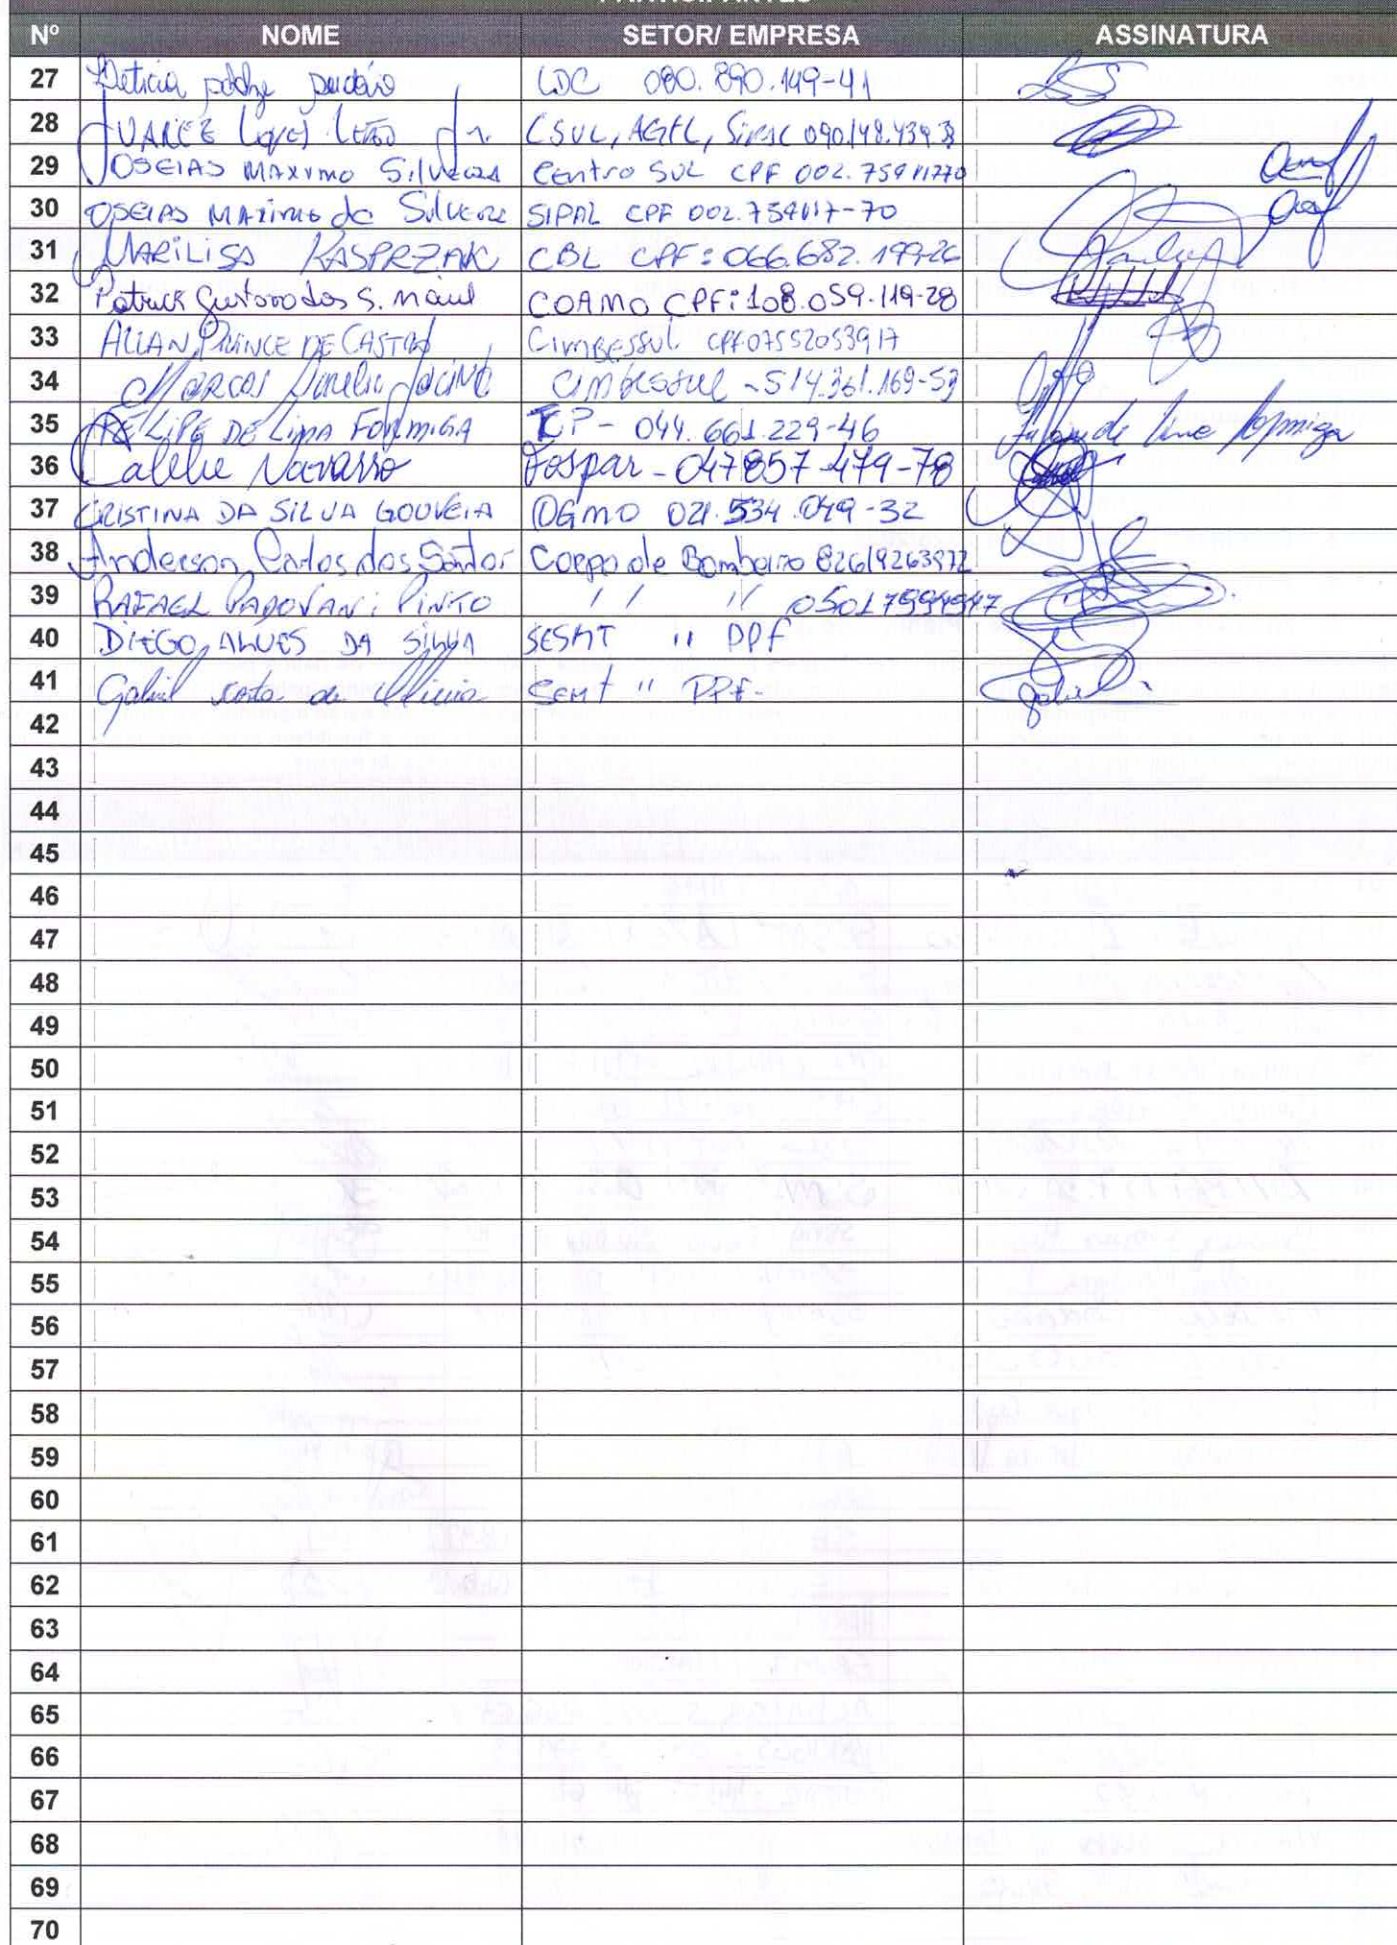 Nº NOME SETOR/ EMPRESA ASSINATURA
27 Leticia LDC 080.890.149-41
28 JUAREZ Lopes Leão Jr. CSUL, AGTL, 090.148.439.3
29 OSEIAS MAXIMO Silveira Centro SUL CPF 002.759
30 OSEIAS MAXIMO da Silveira SIPAL CPF 002.759
31 MARILISA KASPRZAK CBL CPF: 066.682.199-26
32 Patrick Gustavo dos S. Maul COAMO CPF: 108.059.119-28
33 ALLAN PRINCE DE CASTRO Cimbessul CPF 07552053917
34 Marcos Aurelio Jacinto Cimbessul - 514.361.169-53
35 FELIPE DE LIMA FORMIGA TCP - 044.661.229-46 de Lima Formiga
36 Navarro Fospar - 047857-479-78
37 CRISTINA DA SILVA GOUVEIA OGMO 021.534.049-32
38 Anderson Carlos dos Santos Corpo de Bombeiro 82619263972
39 RAFAEL PADOVANI PINTO '' '' 05017994947
40 DIEGO ALVES DA SILVA SESMT '' PPF
41 Gabriel Costa de Oliveira SEMT '' PPF- Gabriel
42
43
44
45
46
47
48
49
50
51
52
53
54
55
56
57
58
59
60
61
62
63
64
65
66
67
68
69
70